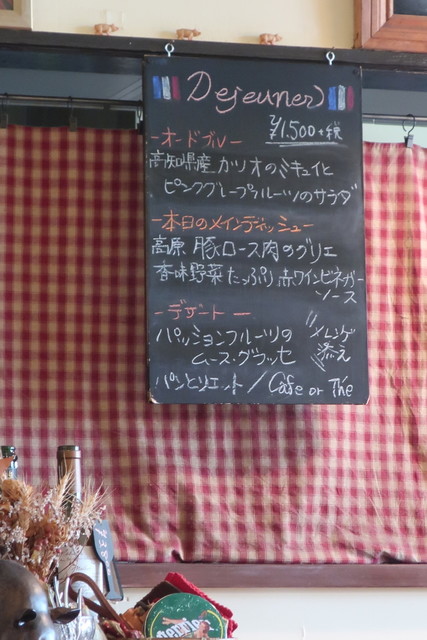 Dejeuner
¥1.500+税
-オードブル-
高知県産カツオのミキュイと
ピンクグレープフルーツのサラダ
-本日のメインディッシュ-
高原豚ロース肉のグリエ
香味野菜たっぷり赤ワインビネガー
ソース
-デザート-
パッションフルーツの
ムース・グラッセ
メレンゲ
添え
パンとリエット / Cafe or Thé